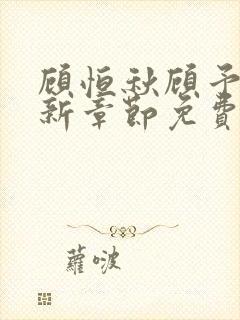 顾恒秋顾予
新章节免费
蘿啵